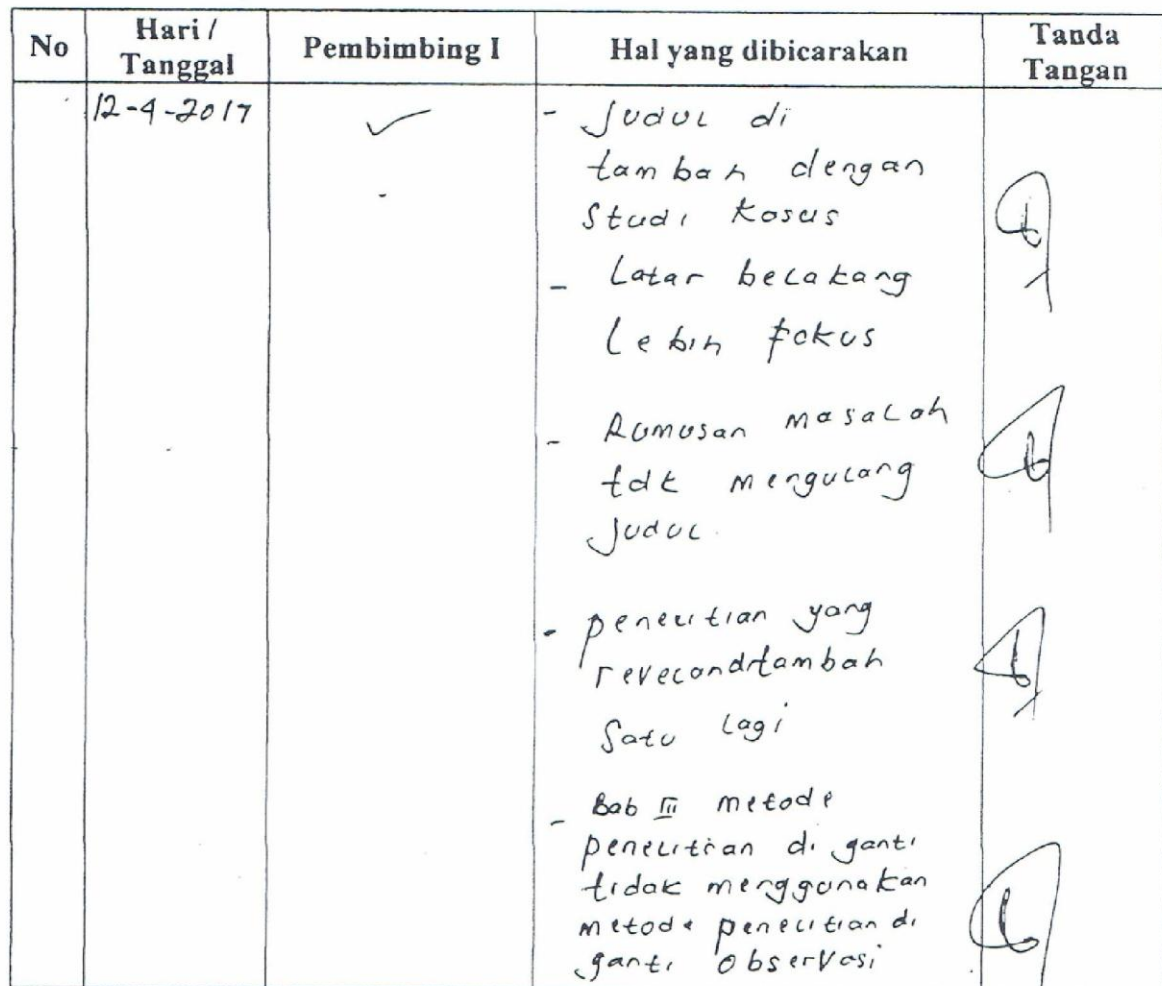 No Hari / Tanggal Pembimbing I Hal yang dibicarakan Tanda Tangan
12-4-2017
- Judul di
tambah dengan
Studi Kasus
- Latar belakang
Lebih fokus
- Rumusan masalah
tdk mengulang
Judul.
- penelitian yang
relevan ditambah
Satu lagi
- Bab III metode
penelitian di ganti
tidak menggunakan
metode penelitian di
ganti observasi